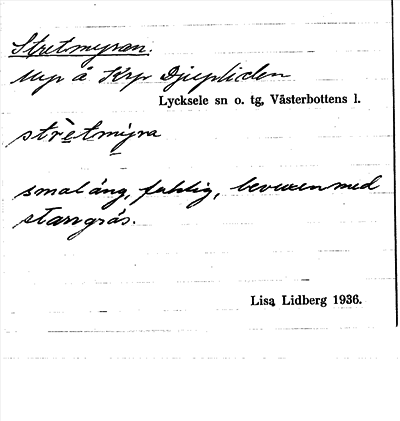 Stretmyran.
Myr å Krp Djupliden
Lycksele sn o. tg, Västerbottens l.
strètmỳra
smal äng, fuktig, bevuxen med
starrgräs.
Lisa Lidberg 1936.